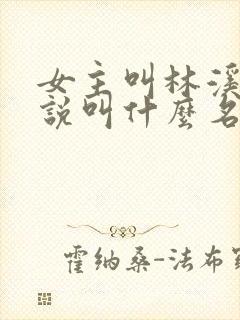 女主叫林溪
說叫什麼名
霍纳桑-法布